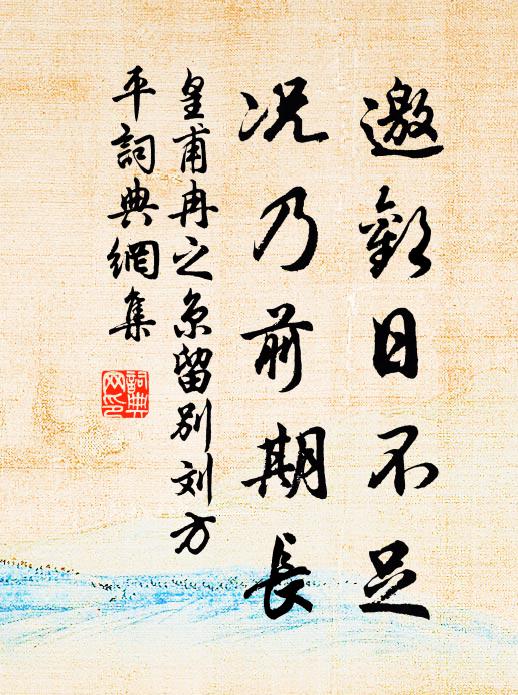 邀歡日不足
况乃前期長
皇甫冉之京留別刘方
平詞典網集
詞典
网印